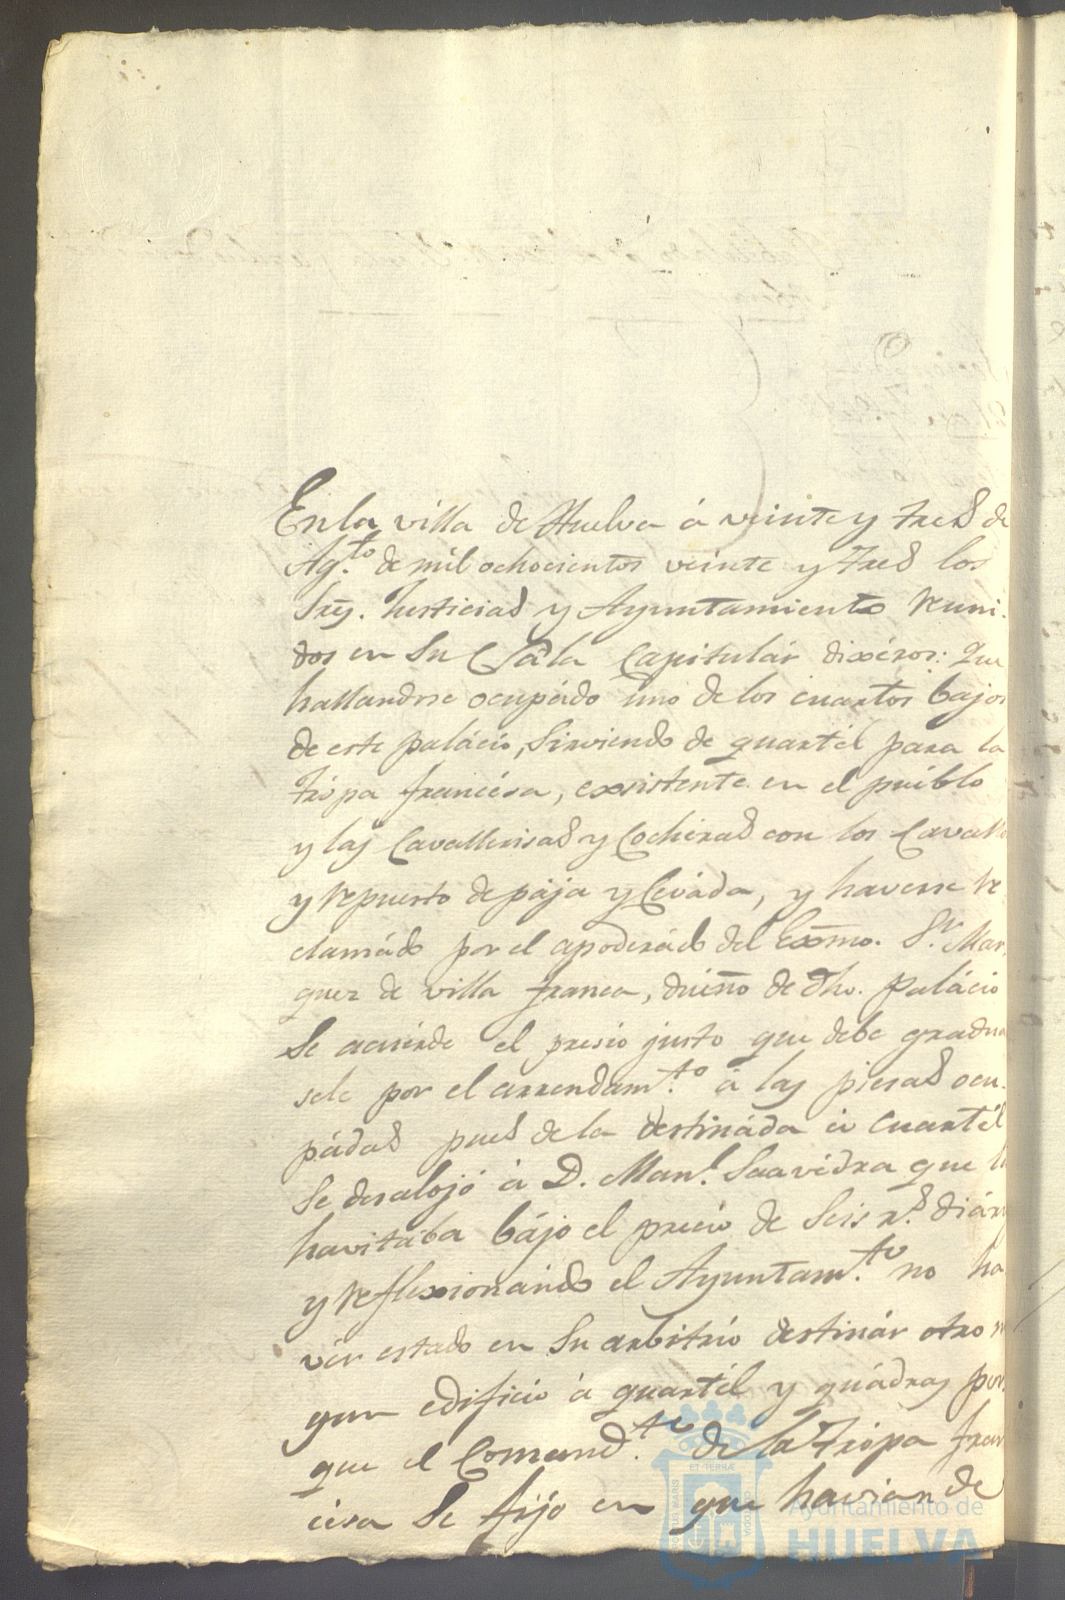 En la villa de Huelva á veinte y tres de
Ag.to de mil ochocientos veinte y tres los
Sres. Justicias y Ayuntamiento reuni-
dos en Su Sala Capitulár dixéron: Que
hallandose ocupádo uno de los cuartos bajos
de este palácio, Sirviendo de quartél para la
tropa francésa, exsistente en el puéblo
y las Cavallerisas y Cocheras con los Cavallo
y repuesto de pája y Ceváda, y haverse re
clamádo por el apoderádo del Exmo. Sr. Mar
quez de villa franca, dueño de dho. palácio
Se acuérde el presio justo que debe gradua
sele por el arrendam.to á las piesas ocu-
pádas pues de la destináda á cuartél
Se desalojó á D. Man.l Saavédra que l
havitába bájo el precio de Seis r.s diár
y reflexsionándo el Ayuntam.to no ha
vér estado en Su arbitrio destinár otro n
gun edificio á quartél y quádras por
que el Comand.te de la tropa fran
cesa Se fijó en que havian de
ET TERRÆ
PORTUS MARIS
CUSTODIA
Ayuntamiento de
HUELVA